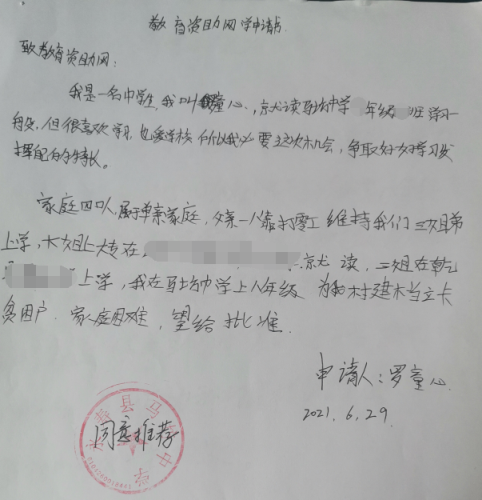 教育资助网学申请书
致教育资助网:
我是一名中学生,我叫童心,就读马坊中学 年级 班 学习一
般,但很喜欢学习,也爱学校 所以我必要这次机会,争取好好学习发
挥自己的特长。
家庭四口人,属于单亲家庭,父亲一人靠打零工维持我们三姐弟
上学,大姐上大专在 就读,二姐在乾
上学,我在马坊中学上八年级 为和村建档立卡
贫困户 家庭困难,望给批准
申请人:罗童心
2021.6.29
同意推荐
县马 中学